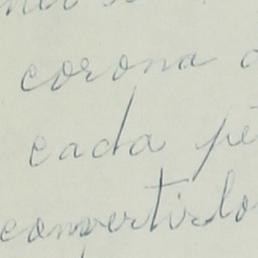 corona
cada pé
convertirlo